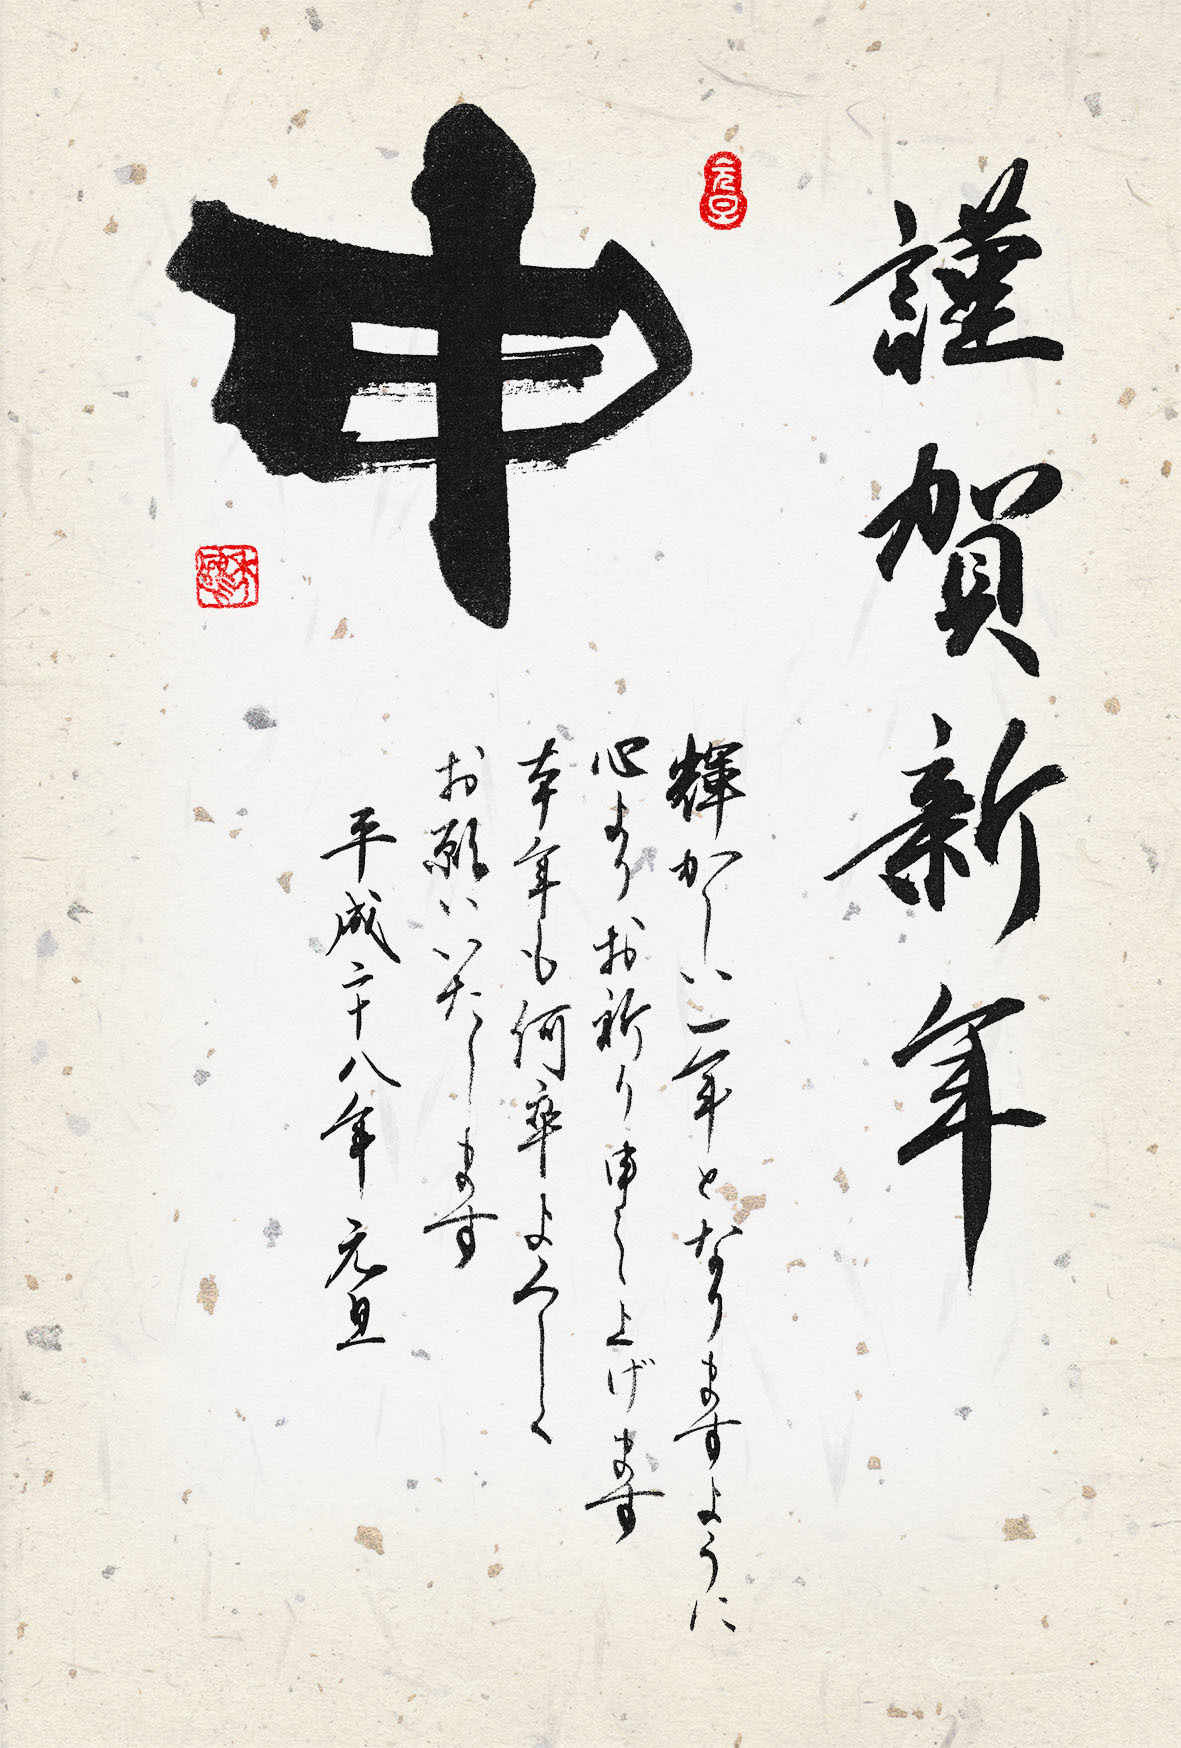 謹賀新年
元旦
申
輝かしい一年となりますように
心よりお祈り申し上げます
本年も何卒よろしく
お願いいたします
平成二十八年 元旦